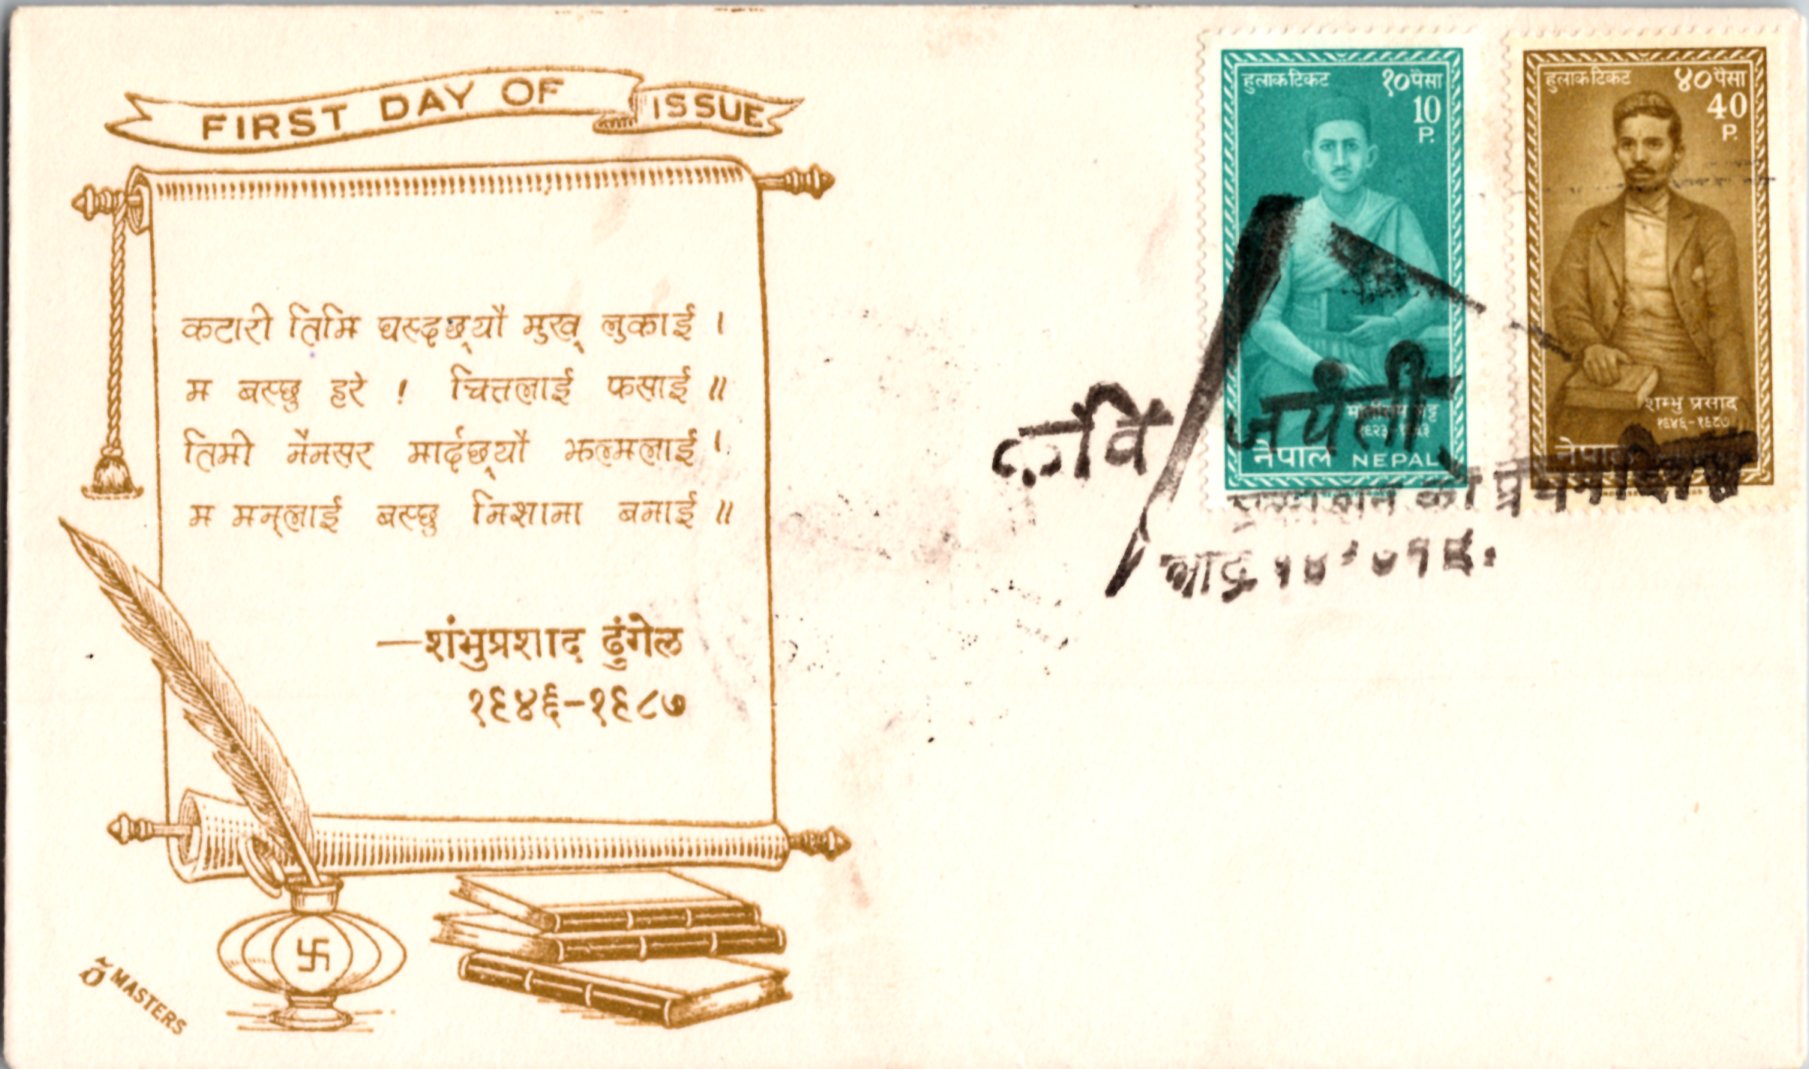 FIRST DAY OF ISSUE
कटारी तिमि घस्दछ्यौ मुख् लुकाई ।
म बस्छु हरे ! चित्तलाई फसाई ॥
तिमी नैनसर मार्दछ्यौ झल्मलाई ।
म मन्लाई बस्छु निशाना बनाई ॥
—शंभुप्रशाद ढुंगेल
१९४६-१९८७
MASTERS
हुलाक टिकट १० पैसा
10
P.
नेपाल NEPAL
हुलाक टिकट ४० पैसा
40
P.
शम्भु प्रसाद
१९४६-१९८७
नेपाल
कवि जयंती
को प्रथम दिवस
भाद्र